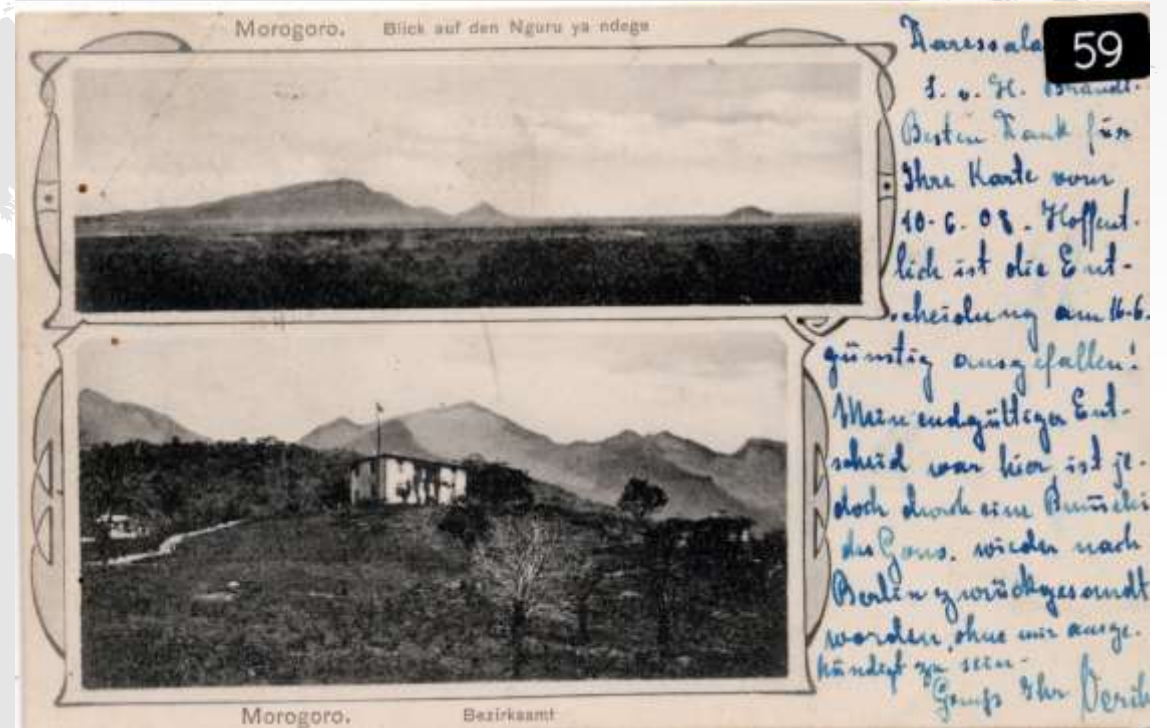 Morogoro. Blick auf den Nguru ya ndege
59
Daressala
S. v. H. Brandt.
Besten Dank für
Ihre Karte vom
10-6.08. Hoffent-
lich ist die Ent-
scheidung am 16-6.
günstig ausgefallen!
Mein endgültiger Ent-
scheid war hier, ist je-
doch durch eine
des Gouv. wieder nach
Berlin zurückgesandt
worden, ohne mir ausge-
händigt zu sein.
Gruß Ihr
Morogoro. Bezirksamt